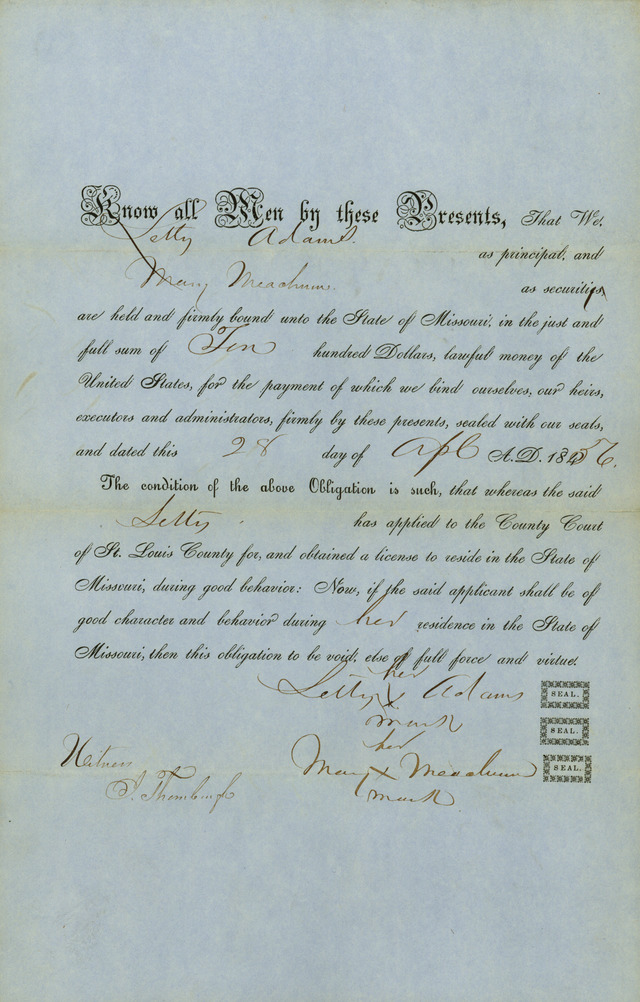 Know all Men by these Presents, That We,
Letty Adams. as principal, and
Mary Meachum. as security
are held and firmly bound unto the State of Missouri, in the just and
full sum of Ten hundred Dollars, lawful money of the
United States, for the payment of which we bind ourselves, our heirs,
executors and administrators, firmly by these presents, sealed with our seals,
and dated this 28 day of Apl A.D. 1856.
The condition of the above Obligation is such, that whereas the said
Letty has applied to the County Court
of St. Louis County for, and obtained a license to reside in the State of
Missouri, during good behavior: Now, if the said applicant shall be of
good character and behavior during her residence in the State of
Missouri, then this obligation to be void, else of full force and virtue.
her
Letty X Adams SEAL.
mark SEAL.
her
Witness Mary X Meachum SEAL.
mark